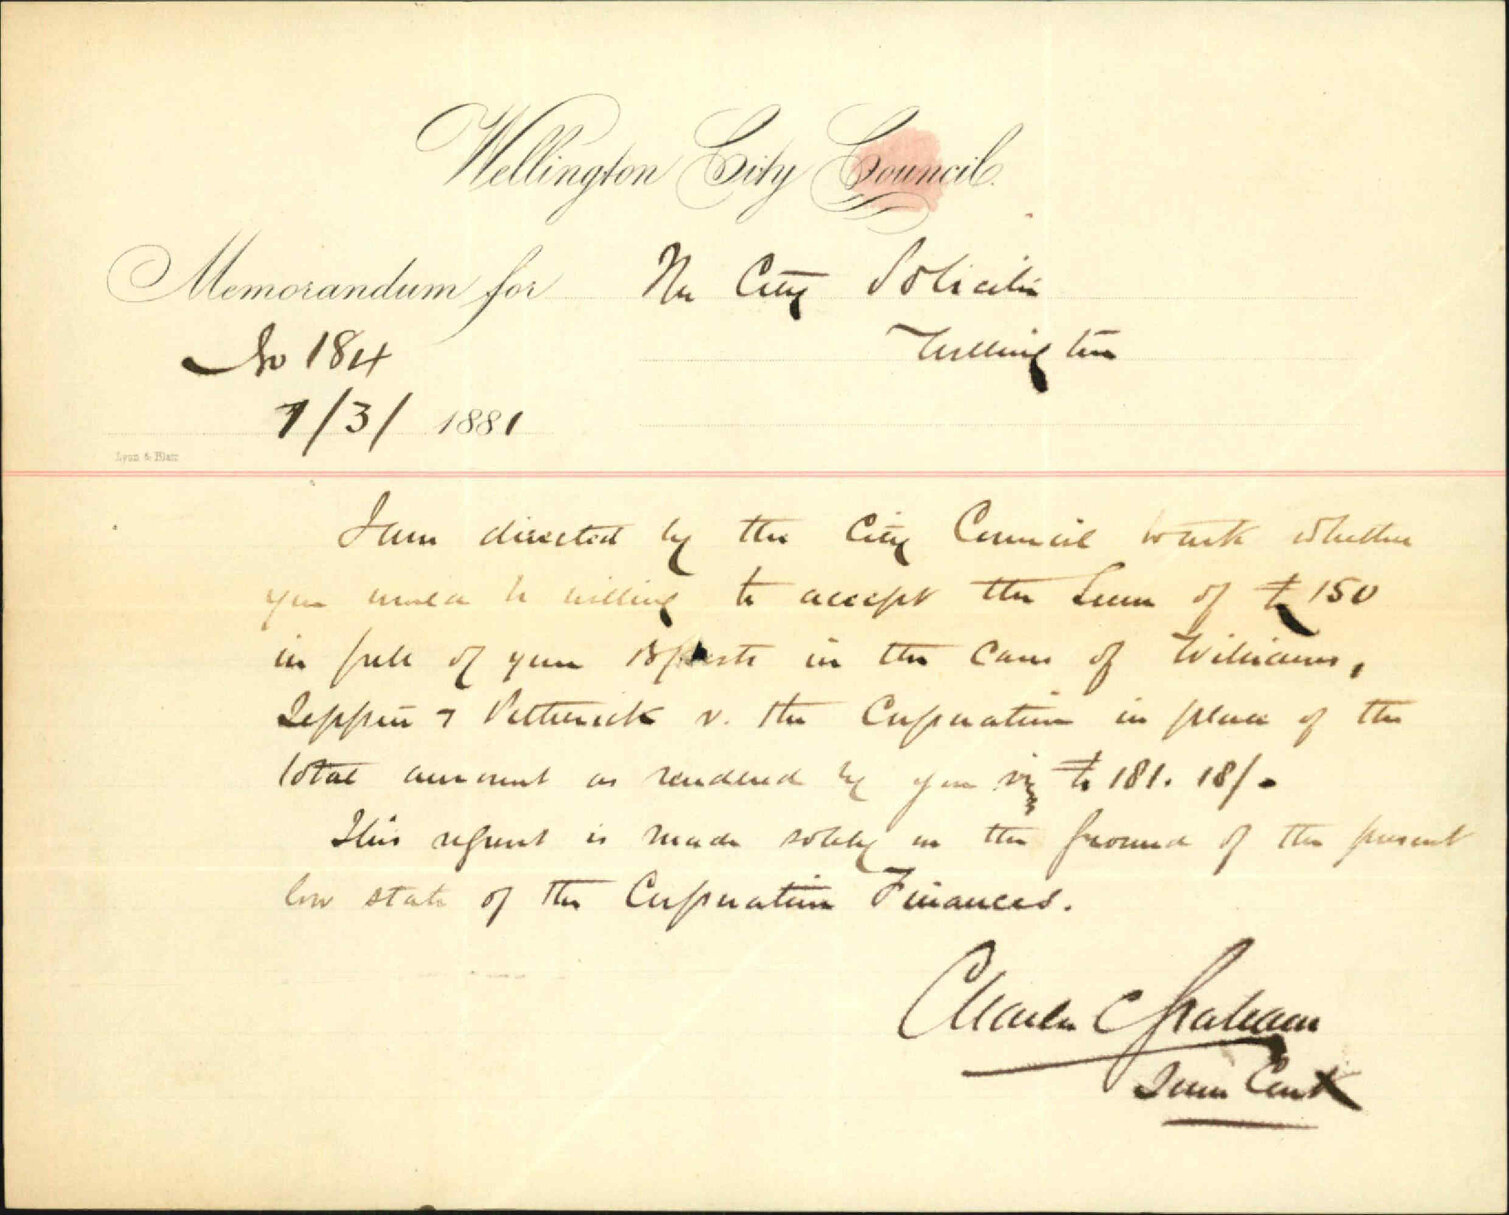 Wellington City Council.
Memorandum for The City Solicitor
No 184 Wellington
7/3/ 1881
Lyon & Blair
I am directed by the City Council to ask whether
you would be willing to accept the Sum of £150
in full of your costs in the case of Williams,
& Petherick v. the Corporation in place of the
total amount as rendered by you viz £181. 18/-
This request is made solely on the ground of the present
low state of the Corporation Finances.
Charles C Graham
Town Clerk